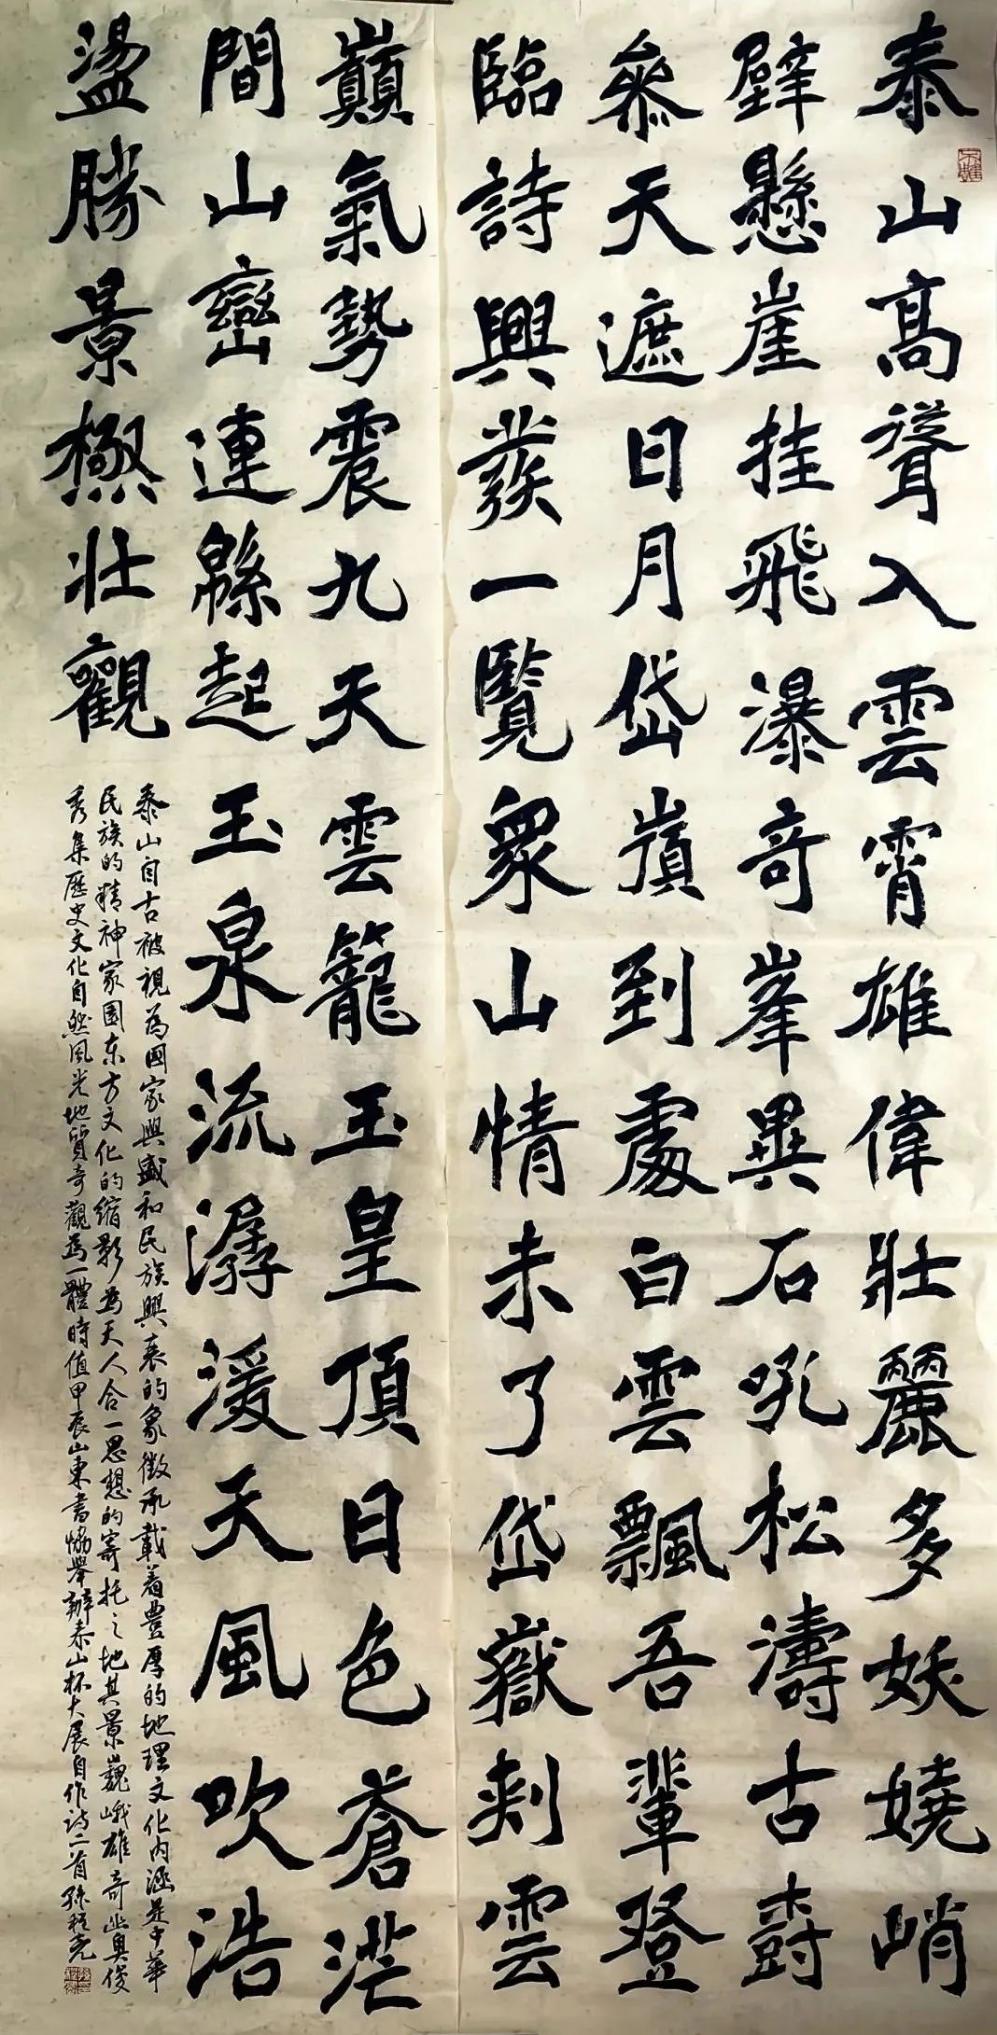 泰山高聳入雲霄雄偉壯麗多妖嬈峭
壁懸崖挂飛瀑奇峯異石吼松濤古樹
叅天遮日月岱嶺到處白雲飄吾輩登
臨詩興發一覽衆山情未了岱嶽刺雲
巔氣勢震九天雲籠玉皇頂日色蒼茫
間山巒連緜起玉泉流潺湲天風吹浩
盪勝景極壯觀
泰山自古被視為國家興盛和民族興衰的象徵承載着豊厚的地理文化内涵是中華
民族的精神家園东方文化的缩影为天人合一思想的寄托之地其景巍峨雄奇幽奥俊
秀集歷史文化自然風光地質奇觀為一體時值甲辰山東書協舉辦泰山杯大展自作诗二首